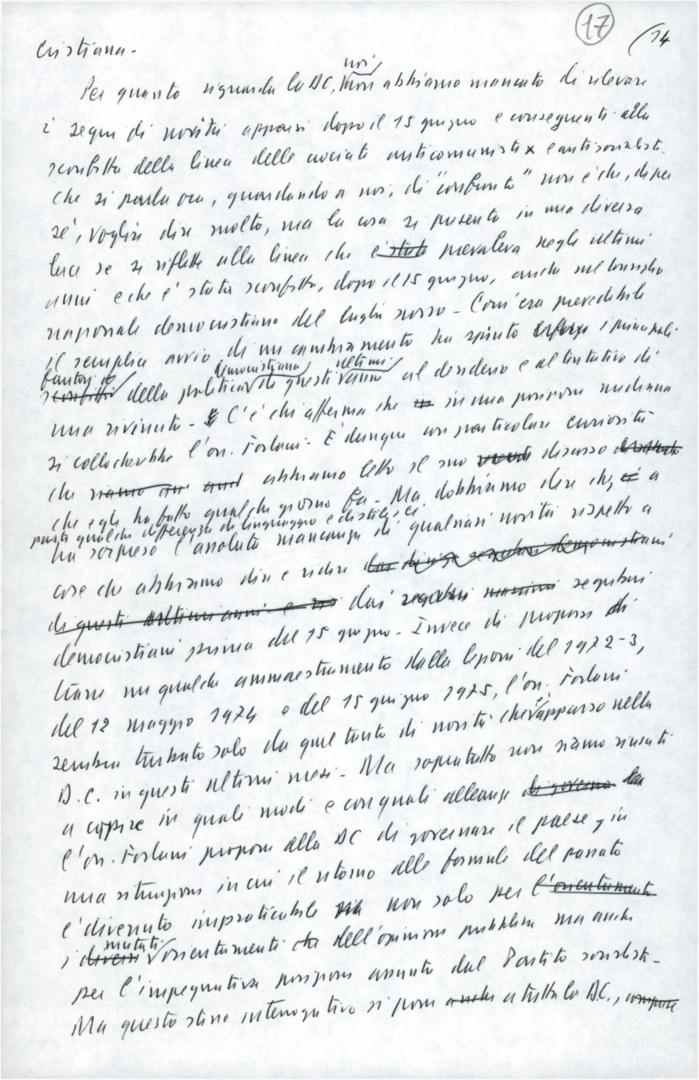 17
14
Cristiana.
noi
Per quanto riguarda la DC, non abbiamo mancato di rilevare
i segni di novità apparsi dopo il 15 giugno e conseguenti alla
sconfitta della linea delle crociate anticomuniste e antisocialiste.
che si parla ora, guardando a noi, di "confronto" non è che, di per
sé, voglia dire molto, ma la cosa si presenta in una diversa
luce se si riflette alla linea che è stata prevaleva negli ultimi
anni e che è stata sconfitta, dopo il 15 giugno, anche nel Consiglio
nazionale democristiano del luglio scorso. Com'era prevedibile
il semplice avvio di un cambiamento ha spinto i principali
fautori
sconfitti della politica democristiana di questi ultimi anni al desiderio e al tentativo di
una rivincita. C'è chi afferma che in una posizione mediana
si collocherebbe l'on. Forlani. È dunque con particolare curiosità
che abbiamo letto il suo discorso
che egli ha fatto qualche giorno fa. Ma dobbiamo dire che, a
parte qualche differenza di linguaggio e di stile, ci
ha sorpreso l'assoluta mancanza di qualsiasi novità rispetto a
cose che abbiamo dire e ridire dai diversi segretari democristiani
di questi ultimi anni e dai segretari
democristiani prima del 15 giugno. Invece di proporsi di
trarre un qualche ammaestramento dalla lezione del 1972-3,
del 12 maggio 1974 o del 15 giugno 1975, l'on. Forlani
sembra turbato solo da quel tanto di novità che è apparso nella
D.C. in questi ultimi mesi. Ma soprattutto non siamo riusciti
a capire in quali modi e con quali alleanze di governo
l'on. Forlani propone alla DC di governare il paese, in
una situazione in cui il ritorno alle formule del passato
è divenuto impraticabile non solo per l'orientamento
mutati
i diversi orientamenti dell'opinione pubblica ma anche
per l'impegnativa posizione assunta dal Partito socialista.
Ma questo stesso interrogativo si pone anche a tutta la D.C.,